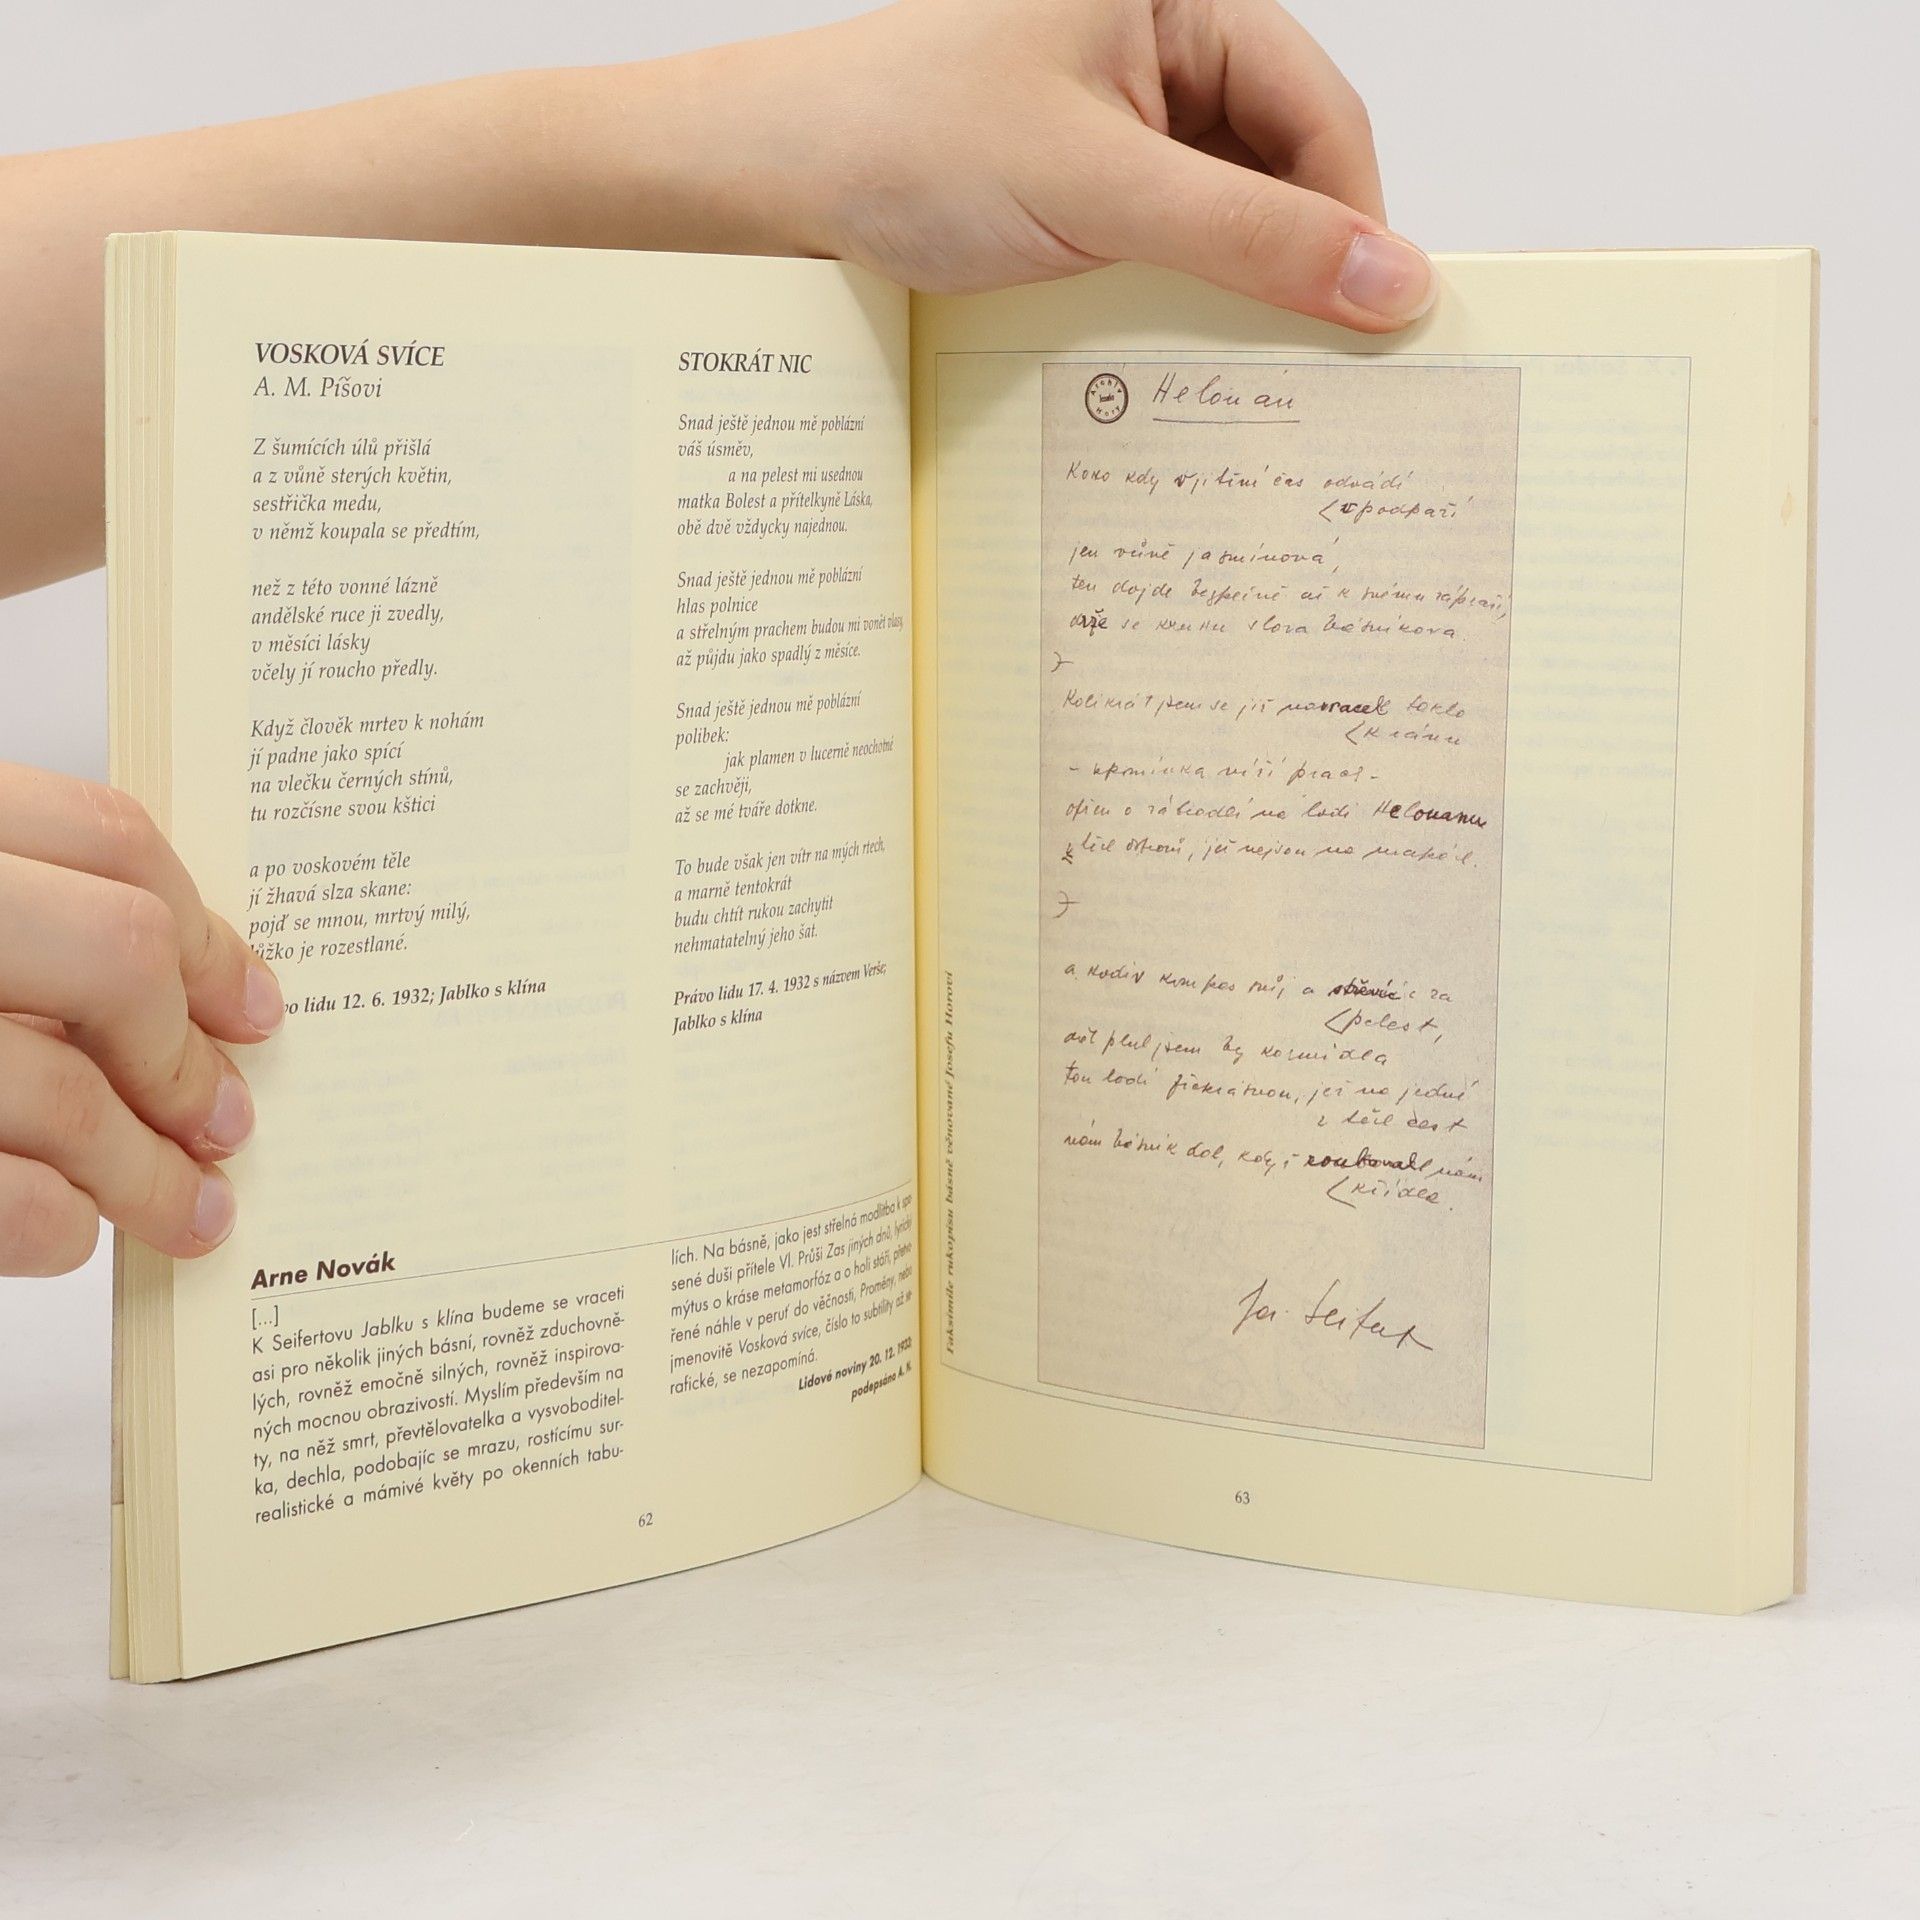 VOSKOVÁ SVÍCE
A. M. Píšovi
Z šumících úlů přišlá
a z vůně sterých květin,
sestřička medu,
v němž koupala se předtím,
než z této vonné lázně
andělské ruce ji zvedly,
v měsíci lásky
včely jí roucho předly.
Když člověk mrtev k nohám
jí padne jako spící
na vlečku černých stínů,
tu rozčísne svou kštici
a po voskovém těle
jí žhavá slza skane:
pojď se mnou, mrtvý milý,
lůžko je rozestlané.
vo lidu 12. 6. 1932; Jablko s klína
STOKRÁT NIC
Snad ještě jednou mě poblázní
váš úsměv,
a na pelest mi usednou
matka Bolest a přítelkyně Láska,
obě dvě vždycky najednou.
Snad ještě jednou mě poblázní
hlas polnice
a střelným prachem budou mi vonět vlasy,
až půjdu jako spadlý z měsíce.
Snad ještě jednou mě poblázní
polibek:
jak plamen v lucerně neochotně
se zachvěji,
až se mé tváře dotkne.
To bude však jen vítr na mých rtech,
a marně tentokrát
budu chtít rukou zachytit
nehmatatelný jeho šat.
Právo lidu 17. 4. 1932 s názvem Verše;
Jablko s klína
Arne Novák
[...]
K Seifertovu Jablku s klína budeme se vraceti
asi pro několik jiných básní, rovněž zduchovně-
lých, rovněž emočně silných, rovněž inspirova-
ných mocnou obrazivostí. Myslím především na
ty, na něž smrt, převtělovatelka a vysvoboditel-
ka, dechla, podobajíc se mrazu, rostícímu sur-
realistické a mámivé květy po okenních tabu-
lích. Na básně, jako jest střelná modlitba k spa-
sené duši přítele Vl. Průši Zas jiných dnů, lyrický
mýtus o kráse metamorfóz a o holi stáří, přetvo-
řené náhle v peruť do věčnosti, Proměny, nebo
jmenovitě Vosková svíce, číslo to subtility až se-
rafické, se nezapomíná.
Lidové noviny 20. 12. 1933;
podepsáno A. N.
62
Faksimile rukopisu básně věnované Josefu Horovi
Archiv
Josefa
Hory
Helouán
Koho kdy vjitřní čas odvádí
v podpaří
jen vůně jasmínová,
ten dojde bezpečně až k svému zápraží,
drže se kruhu slova básníkova.
Kolikrát jsem se již navracel takto
k ránu
- vzpomínka víří prach -
opřen o zábradlí na lodi Helouanu
z těch ostrovů, jež nejsou na mapách.
a kodiv kompas můj a za
pelest,
než plul jsem by kormidla
tou lodí překrásnou, jež na jedné
z těch cest
nám básník dal, když nám
křídla.
Jar. Seifert
63